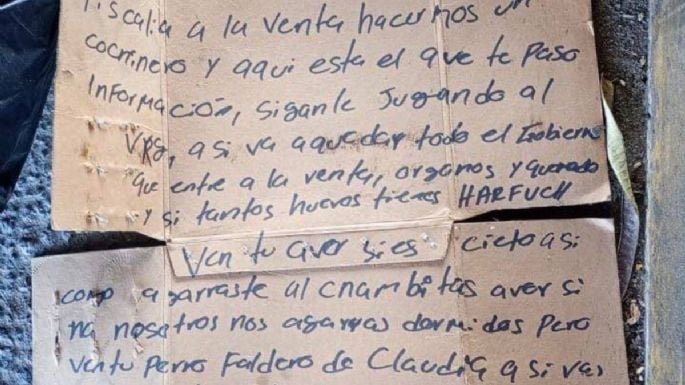 Fiscalia a la venta hacermos un
cocninero y aqui esta el que te paso
Información, siganle Jugando al
Vrg, a si va aquedar todo el Gobierno
que entre a la venta, organos y
y si tantos huevos tienes HARFUCH
Ven tu aver si es cieto asi
como agarraste al chambitas aver si
na nosotros nos agarras dormidos Pero
ven tu Perro Faldero de Claudia a si vas